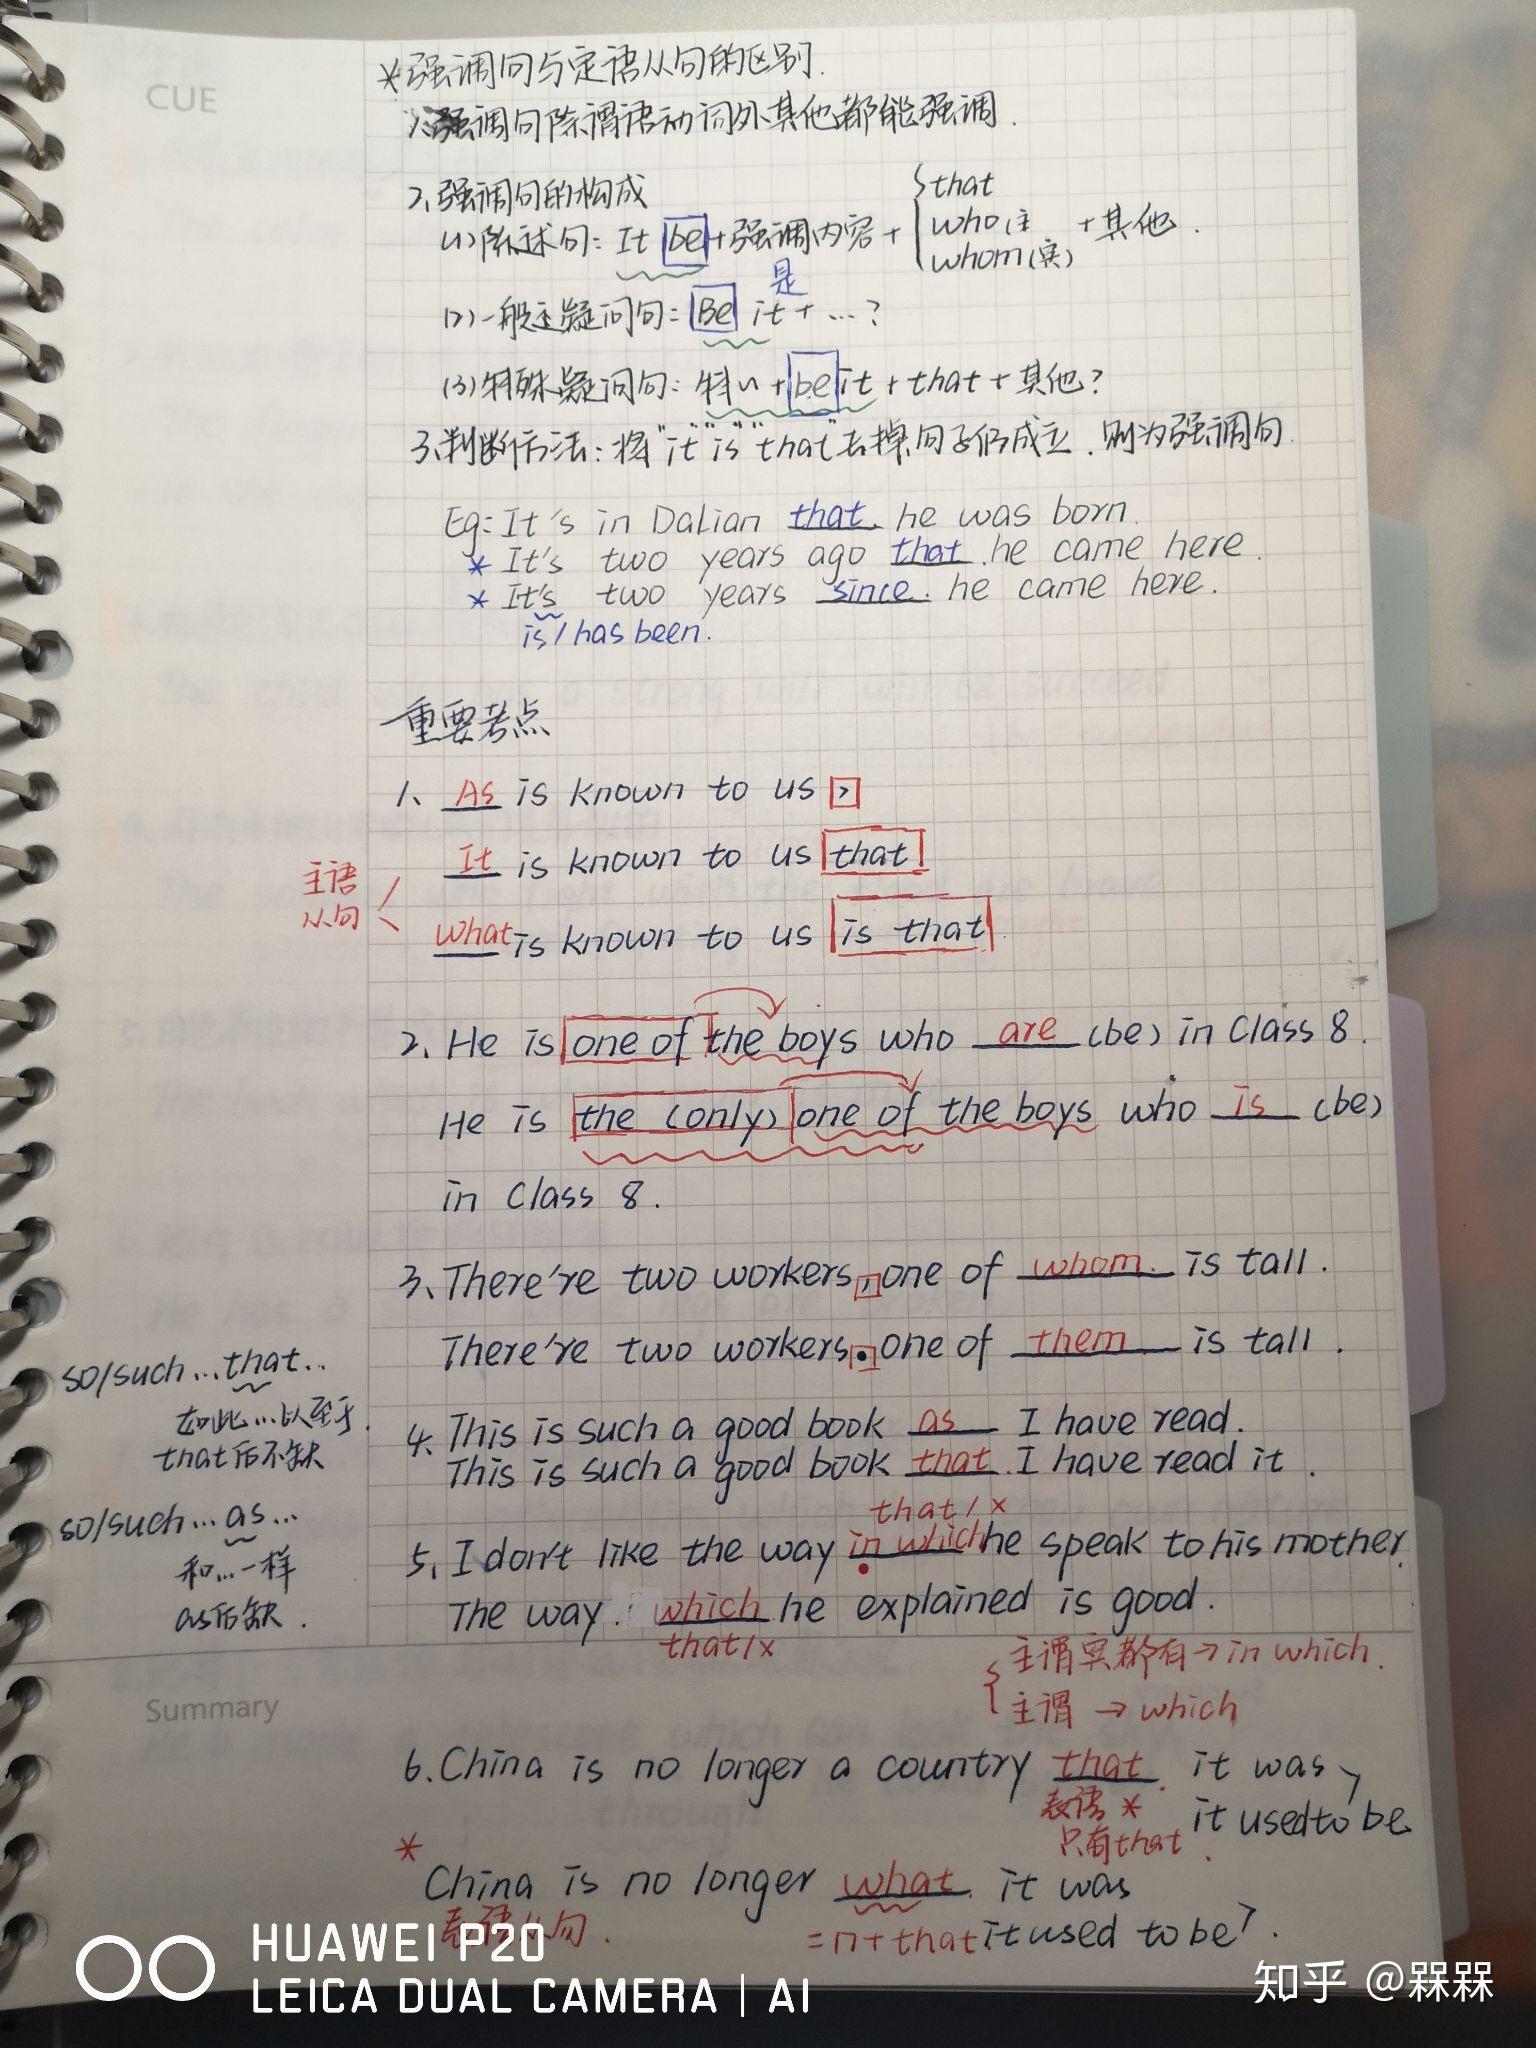 CUE
*强调句与定语从句的区别.
1、强调句除谓语动词外其他都能强调.
2、强调句的构成
(1)陈述句: It be+强调内容+{that who(主 whom(宾) +其他.
是
(2)一般疑问句: Be it+...?
(3)特殊疑问句: 特n+be it+that+其他?
3、判断方法:将"it""is""that"去掉,句子仍成立.则为强调句.
Eg: It's in Dalian that he was born.
* It's two years ago that he came here.
* It's two years since he came here.
is/has been.
重要考点
1、As is known to us ,
It is known to us that
主语从句
What is known to us is that
2、He is one of the boys who are (be) in Class 8.
He is the (only) one of the boys who is (be)
in Class 8.
3、There're two workers, one of whom is tall.
There're two workers. one of them is tall.
so/such...that...
如此...以至于.
that后不缺
4、This is such a good book as I have read.
This is such a good book that I have read it.
so/such...as...
和...一样
as后缺.
that/×
5、I don't like the way in which he speak to his mother.
The way which he explained is good.
that/×
主谓宾都有→in which.
主谓→which
Summary
6.China is no longer a country that it was,
表语*
只有that.
it used to be
*
China is no longer what it was
表语从句.
=n+that it used to be.
HUAWEI P20
LEICA DUAL CAMERA | AI
知乎 @槑槑